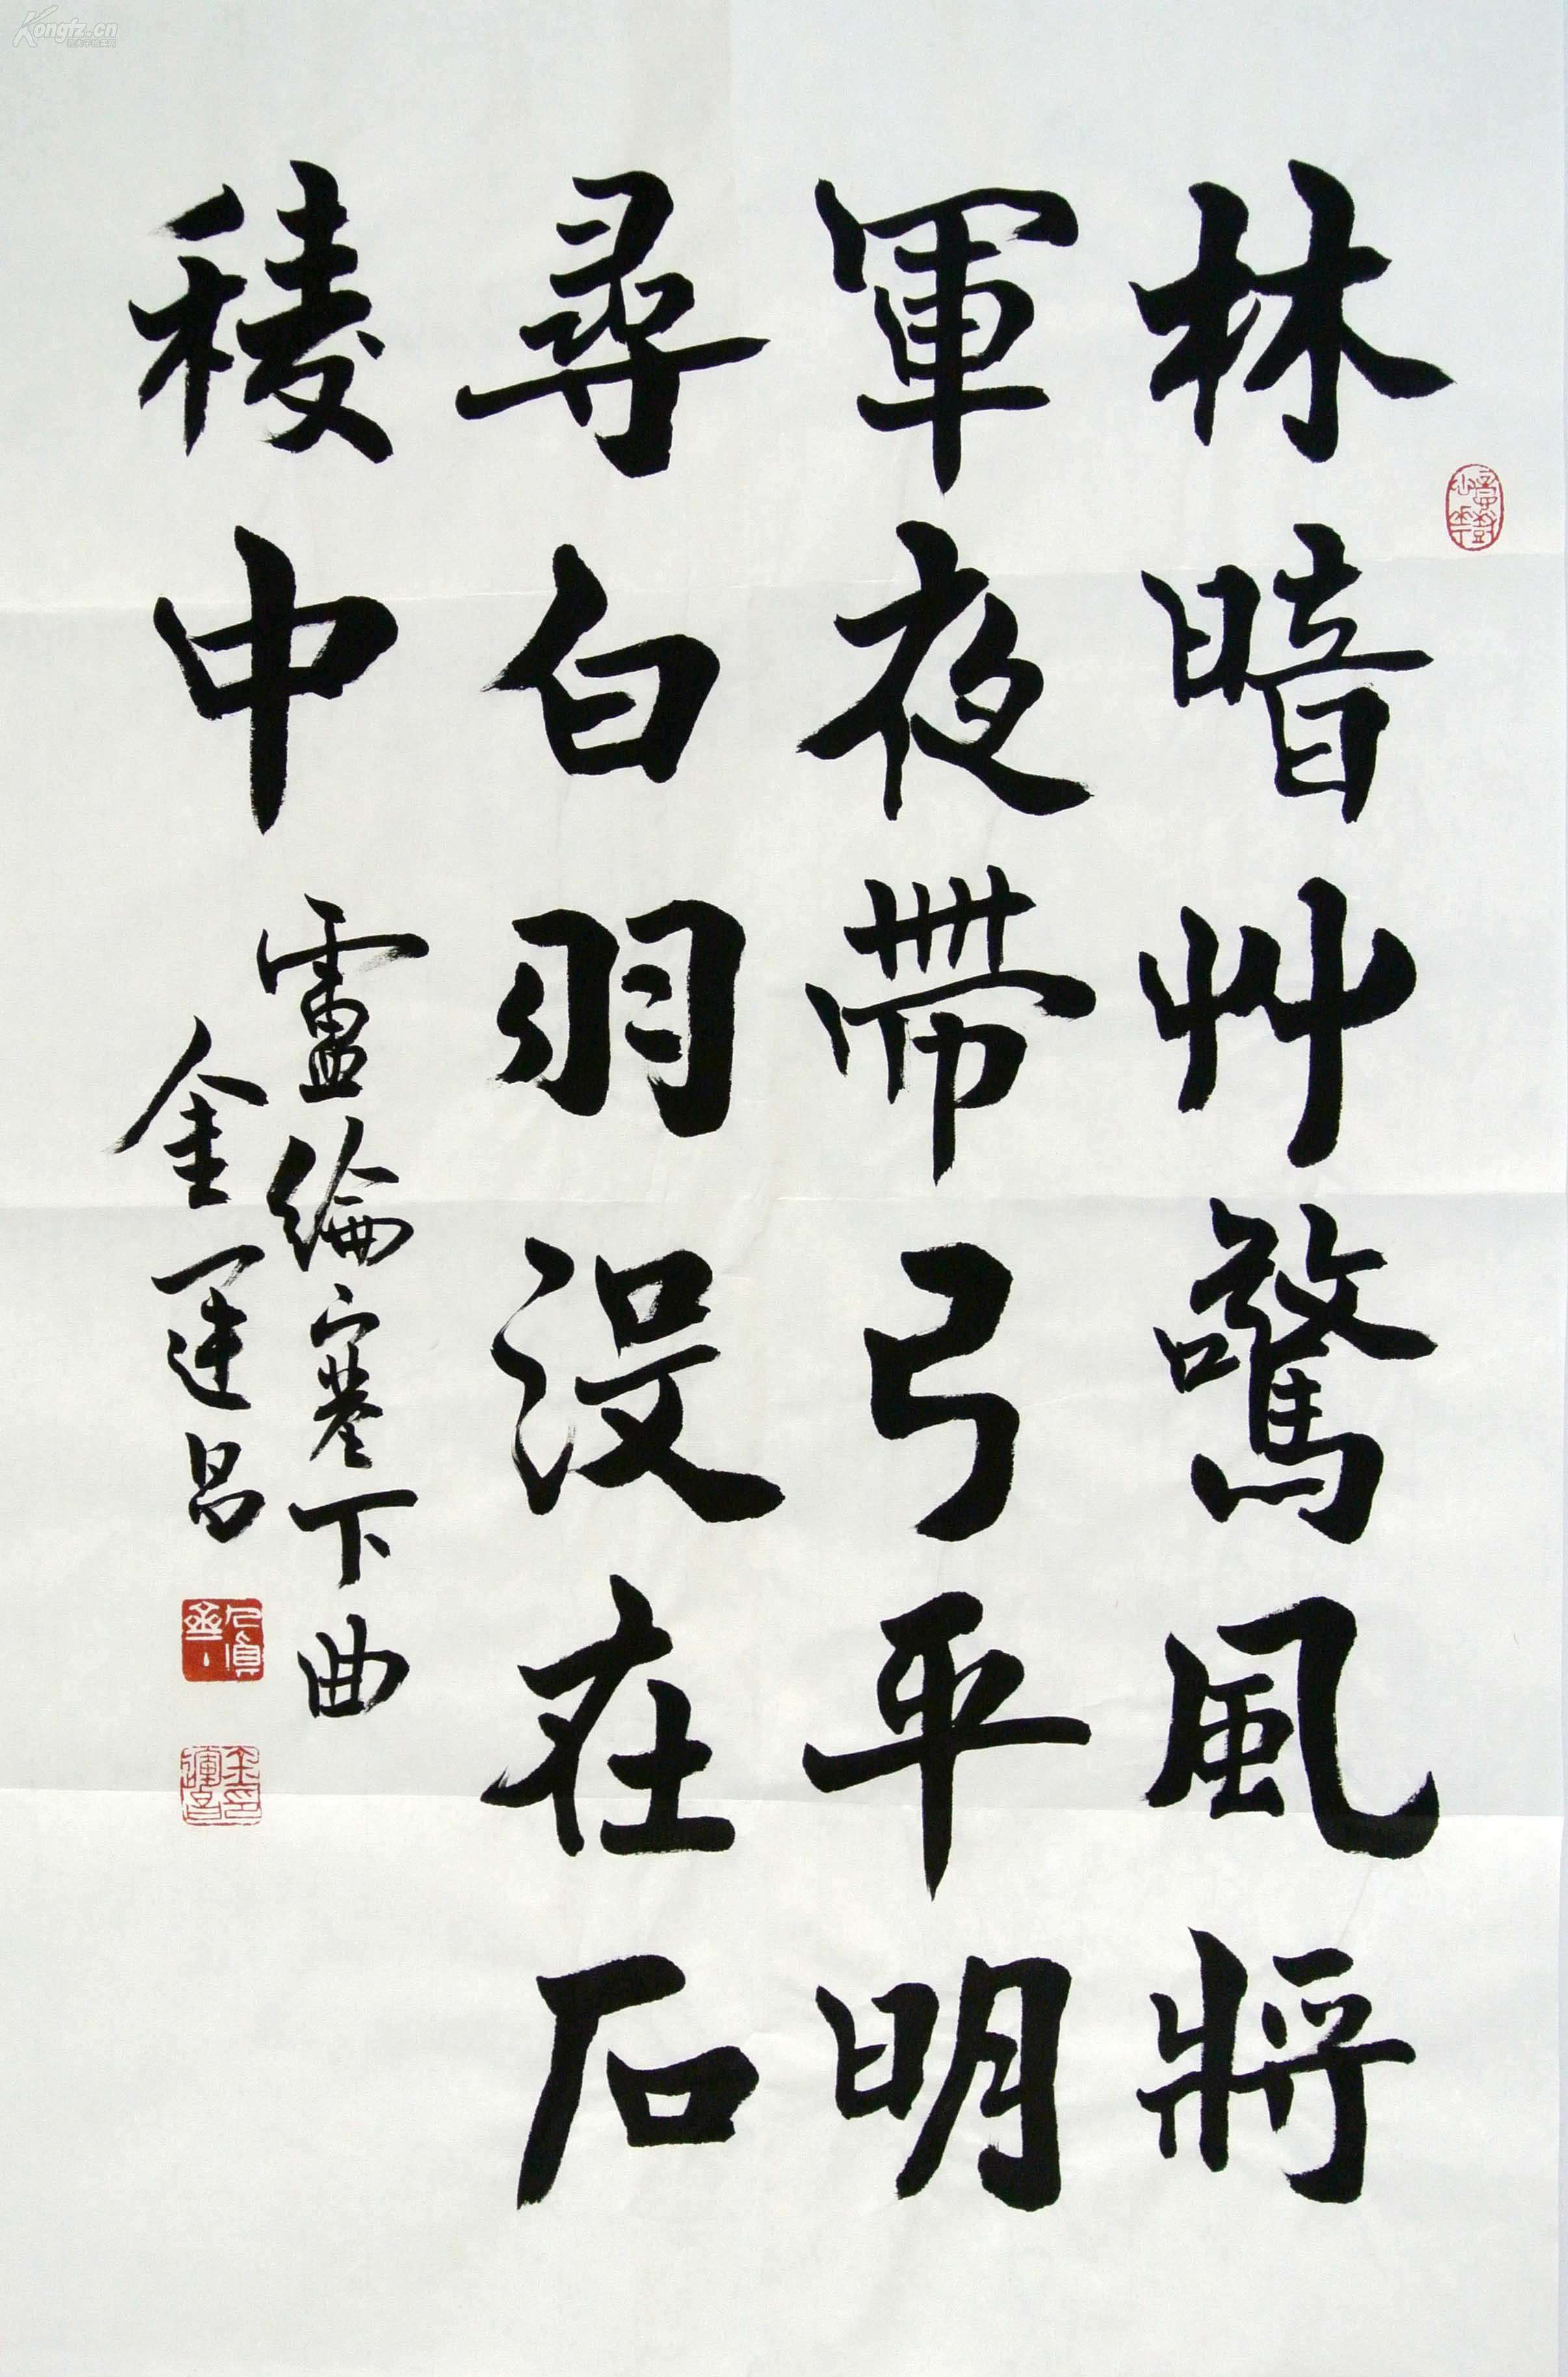 林暗艸驚風將
軍夜帶弓平明
尋白羽没在石
稜中
盧綸塞下曲
金運昌
Kongfz.cn